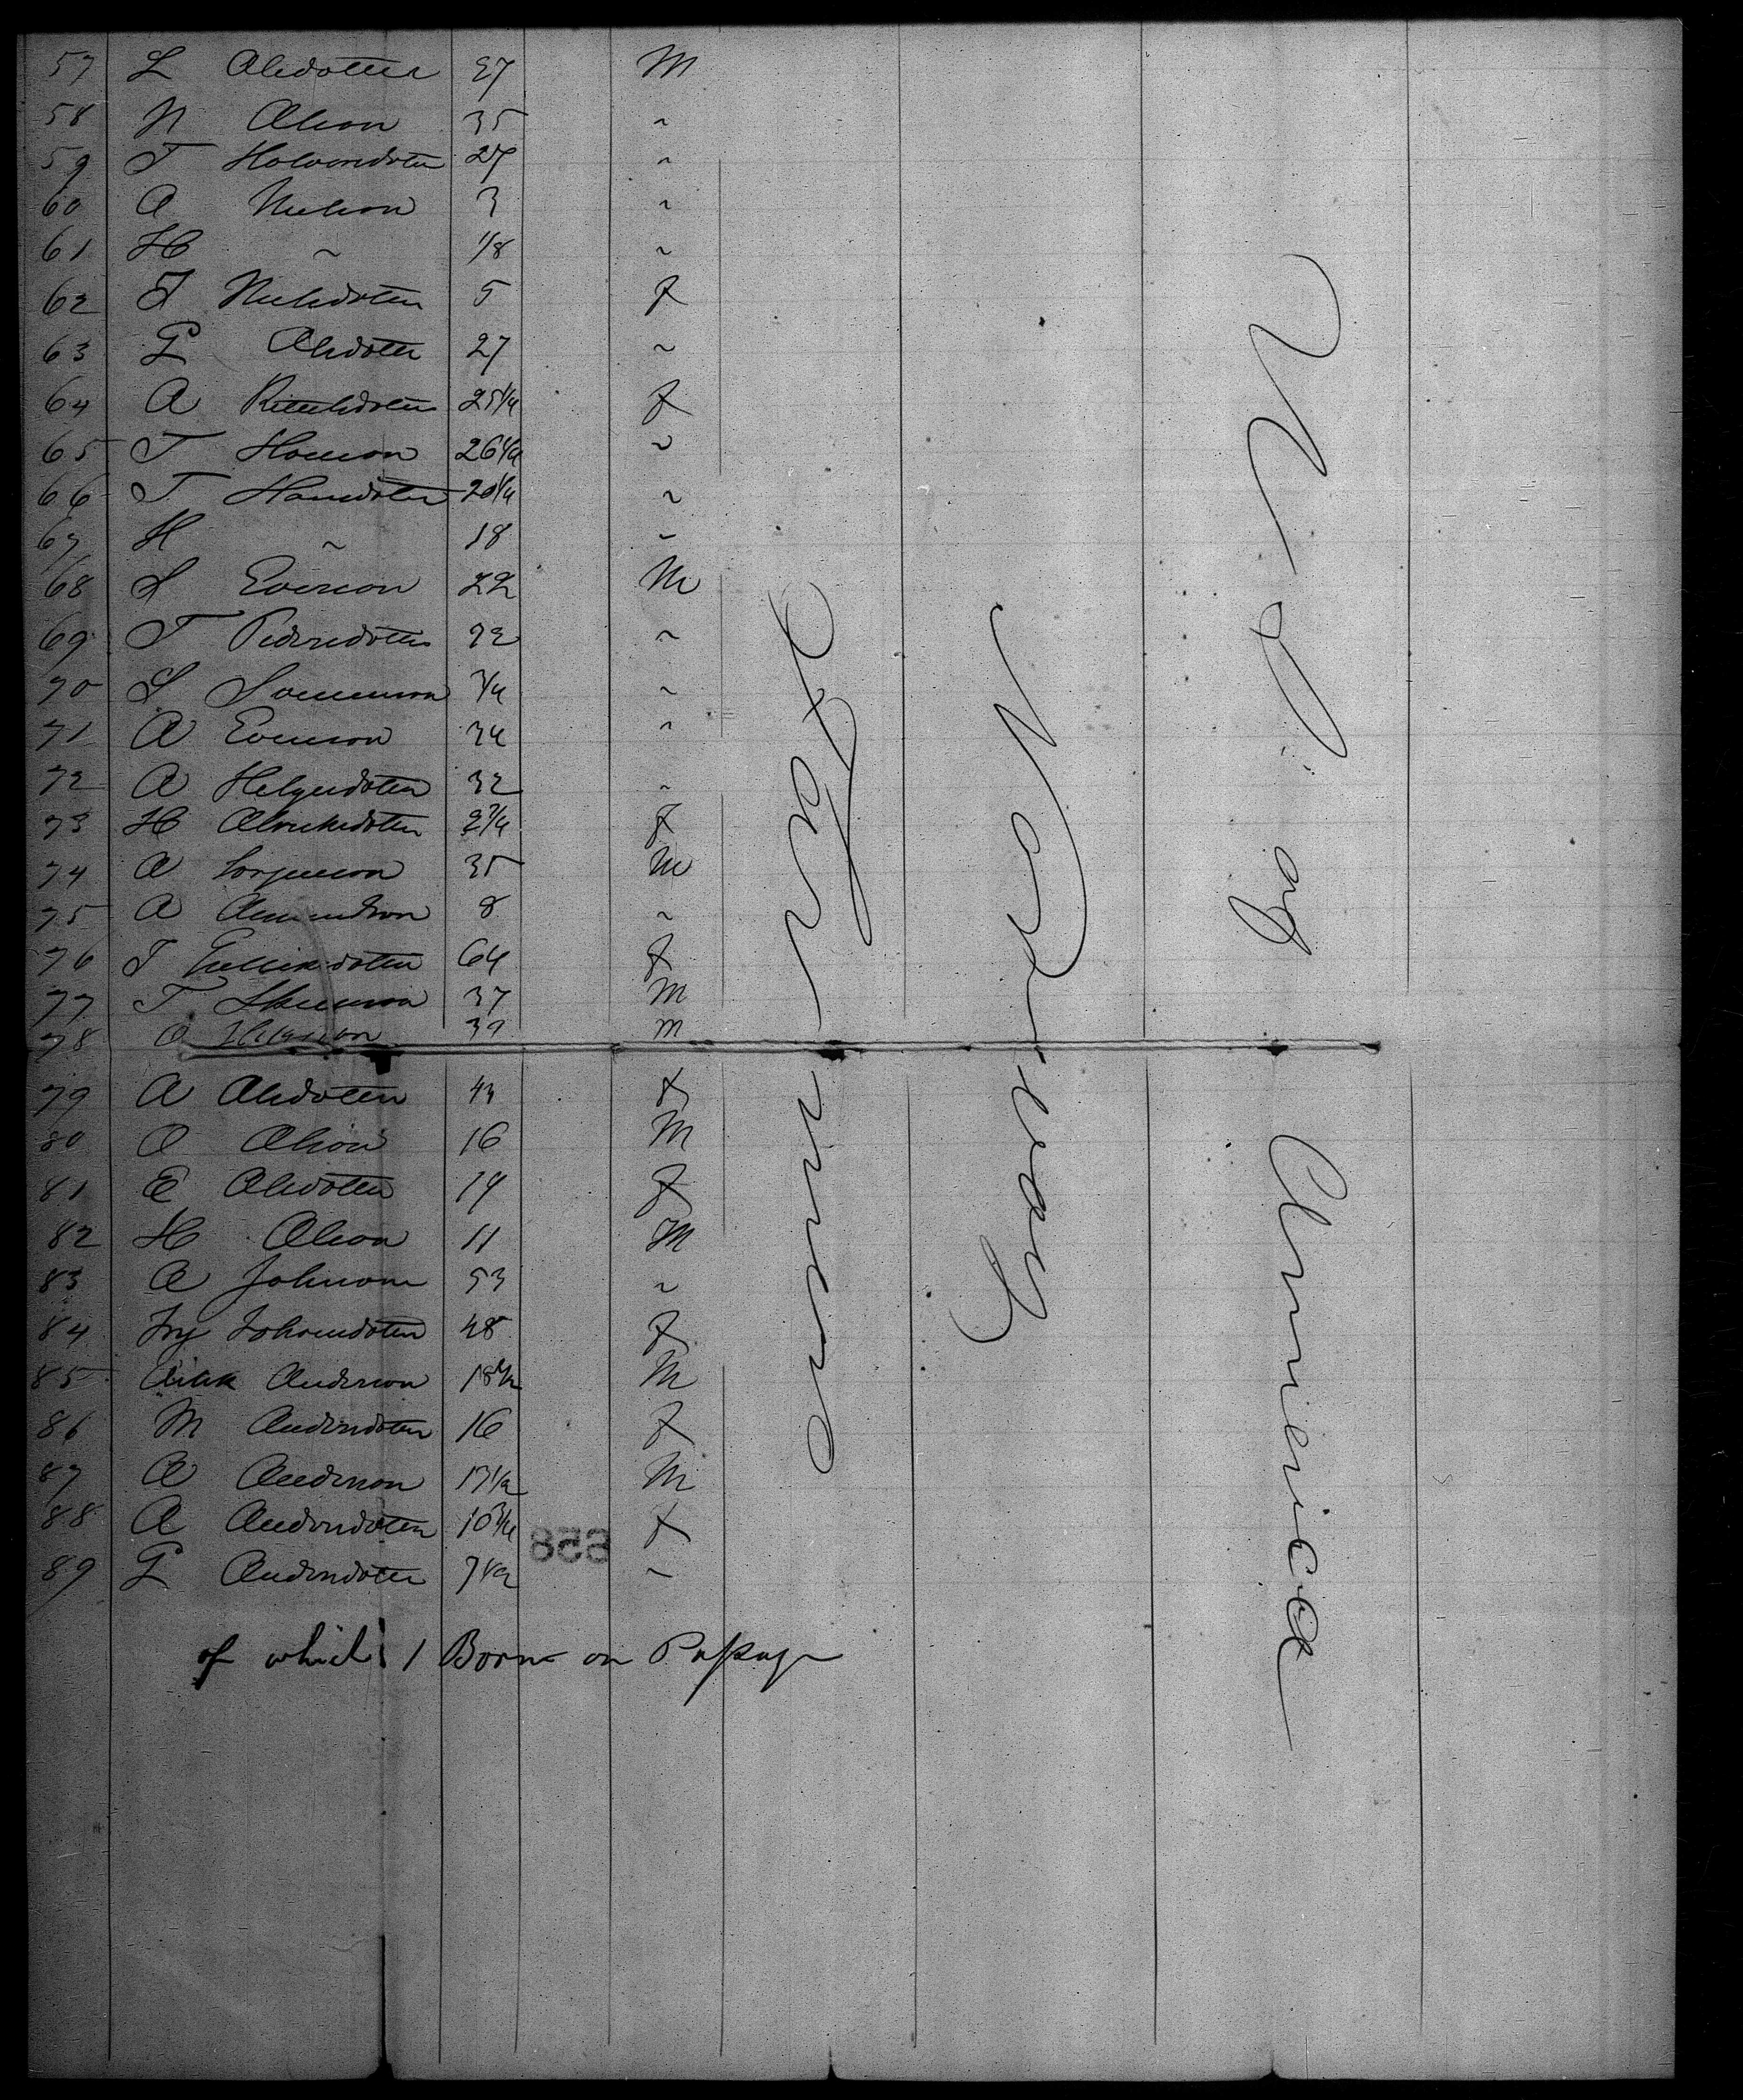 57 L Olsdotter 37 M
58 N Olson 35 ~
59 T Halvorsdotter 27 ~
60 O Nielson 3 ~
61 H ~ 1/8 ~
62 T Nielsdotter 5 f
63 G Olsdotter 27 ~
64 A 25 1/4 f
65 T Hanson 26 1/4 ~
66 T Hansdotter 20 1/4 ~
67 H ~ 18 ~
68 S Everson 22 M
69 T Pedersdotter ~
70 S 3/4 ~
71 A Evenson 34 ~
72 A Helgesdotter 32 ~
73 H 2 3/4 f
74 A 35 M
75 A Amundson 8 ~
76 T Gulliksdotter 64 f
77 T 37 M
78 O 39 M
79 A Olsdotter 43 f
80 O Olson 16 M
81 E Olsdotter 14 f
82 H Olson 11 M
83 A Johnson 53 ~
84 Ing Johansdotter 48 f
85 Anderson M
86 M Andersdotter 16 f
87 A Anderson 13 1/2 M
88 A Andersdotter 10 3/4 f
89 G Andersdotter 7 1/2 ~
Farmers
Norway
U. S. of America
658
of which 1 Born on Passage